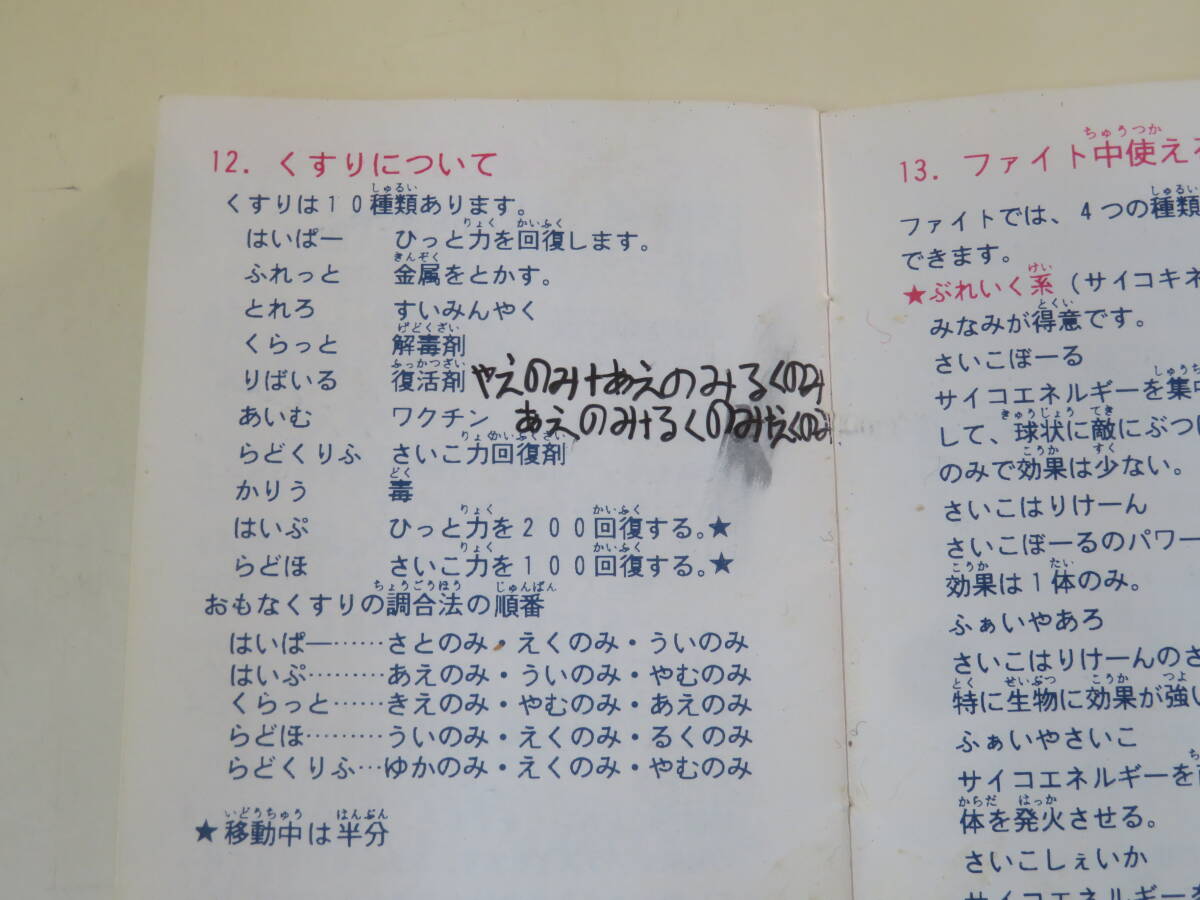 12. くすりについて
くすりは10種類あります。
はいぱー ひっと力を回復します。
ふれっと 金属をとかす。
とれろ すいみんやく
くらっと 解毒剤
りばいる 復活剤 やえのみ+あえのみるくのみ
あいむ ワクチン あえのみ+るくのみ
らどくりふ さいこ力回復剤
かりう 毒
はいぷ ひっと力を200回復する。★
らどほ さいこ力を100回復する。★
おもなくすりの調合法の順番
はいぱー……さとのみ・えくのみ・ういのみ
はいぷ………あえのみ・ういのみ・やむのみ
くらっと……きえのみ・やむのみ・あえのみ
らどほ………ういのみ・えくのみ・るくのみ
らどくりふ…ゆかのみ・えくのみ・やむのみ
★移動中は半分
13. ファイト中使え
ファイトでは、4つの種類
できます。
★ぶれいく系(サイコキネ
みなみが得意です。
さいこぼーる
サイコエネルギーを集
して、球状に敵にぶつ
のみで効果は少ない。
さいこはりけーん
さいこぼーるのパワー
効果は1体のみ。
ふぁいやあろ
さいこはりけーんのさ
特に生物に効果が強い
ふぁいやさいこ
サイコエネルギーを
体を発火させる。
さいこしぇいか
サイコエネルギーを